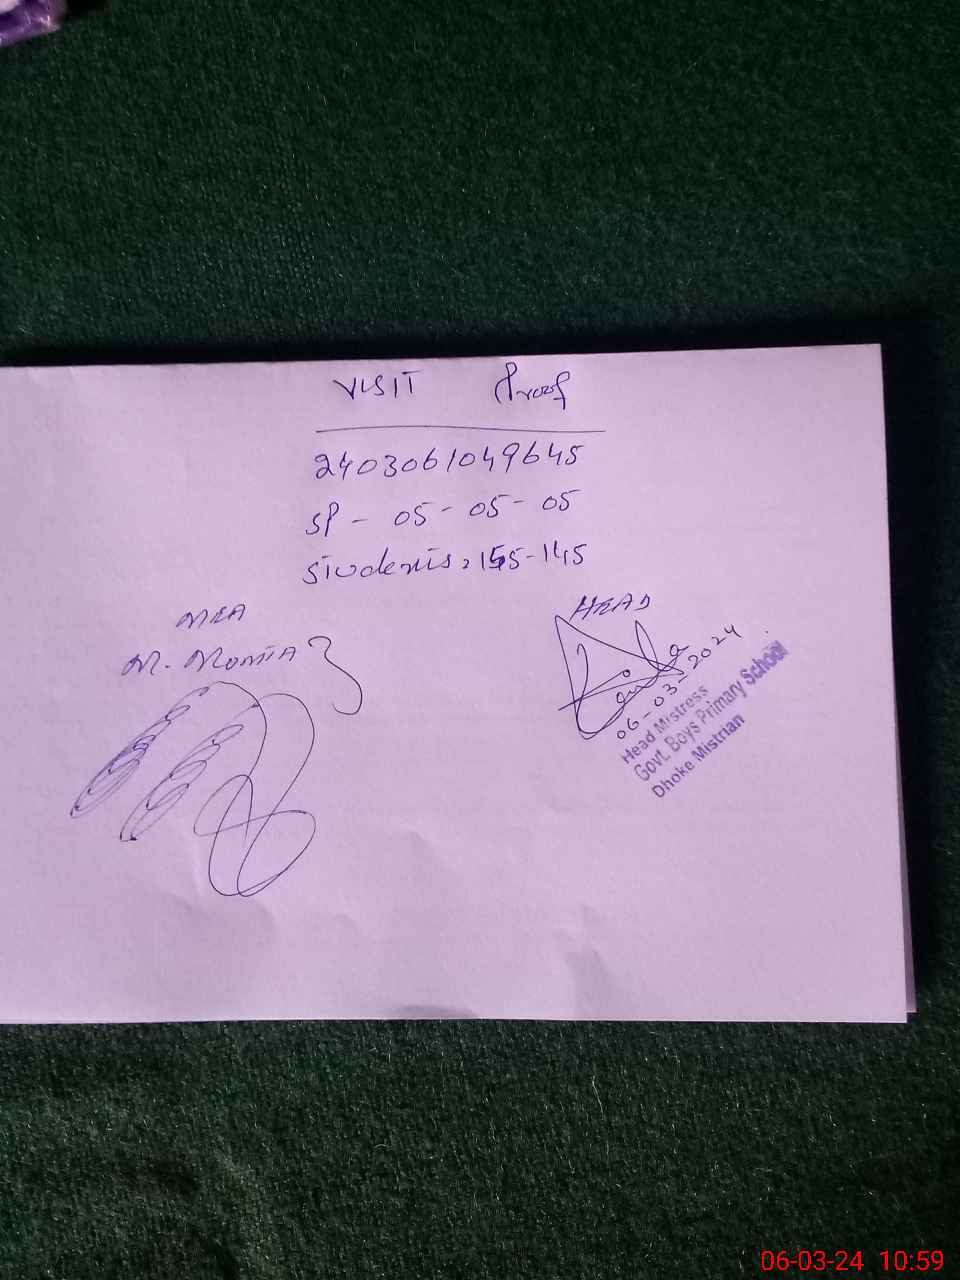 VISIT Proof
2403061049645
SP - 05 - 05 - 05
Students: 155-145
MEA
HEAD
M.
06-03-2024
Head Mistress
Govt. Boys Primary School
Dhoke Mistrian
06-03-24 10:59